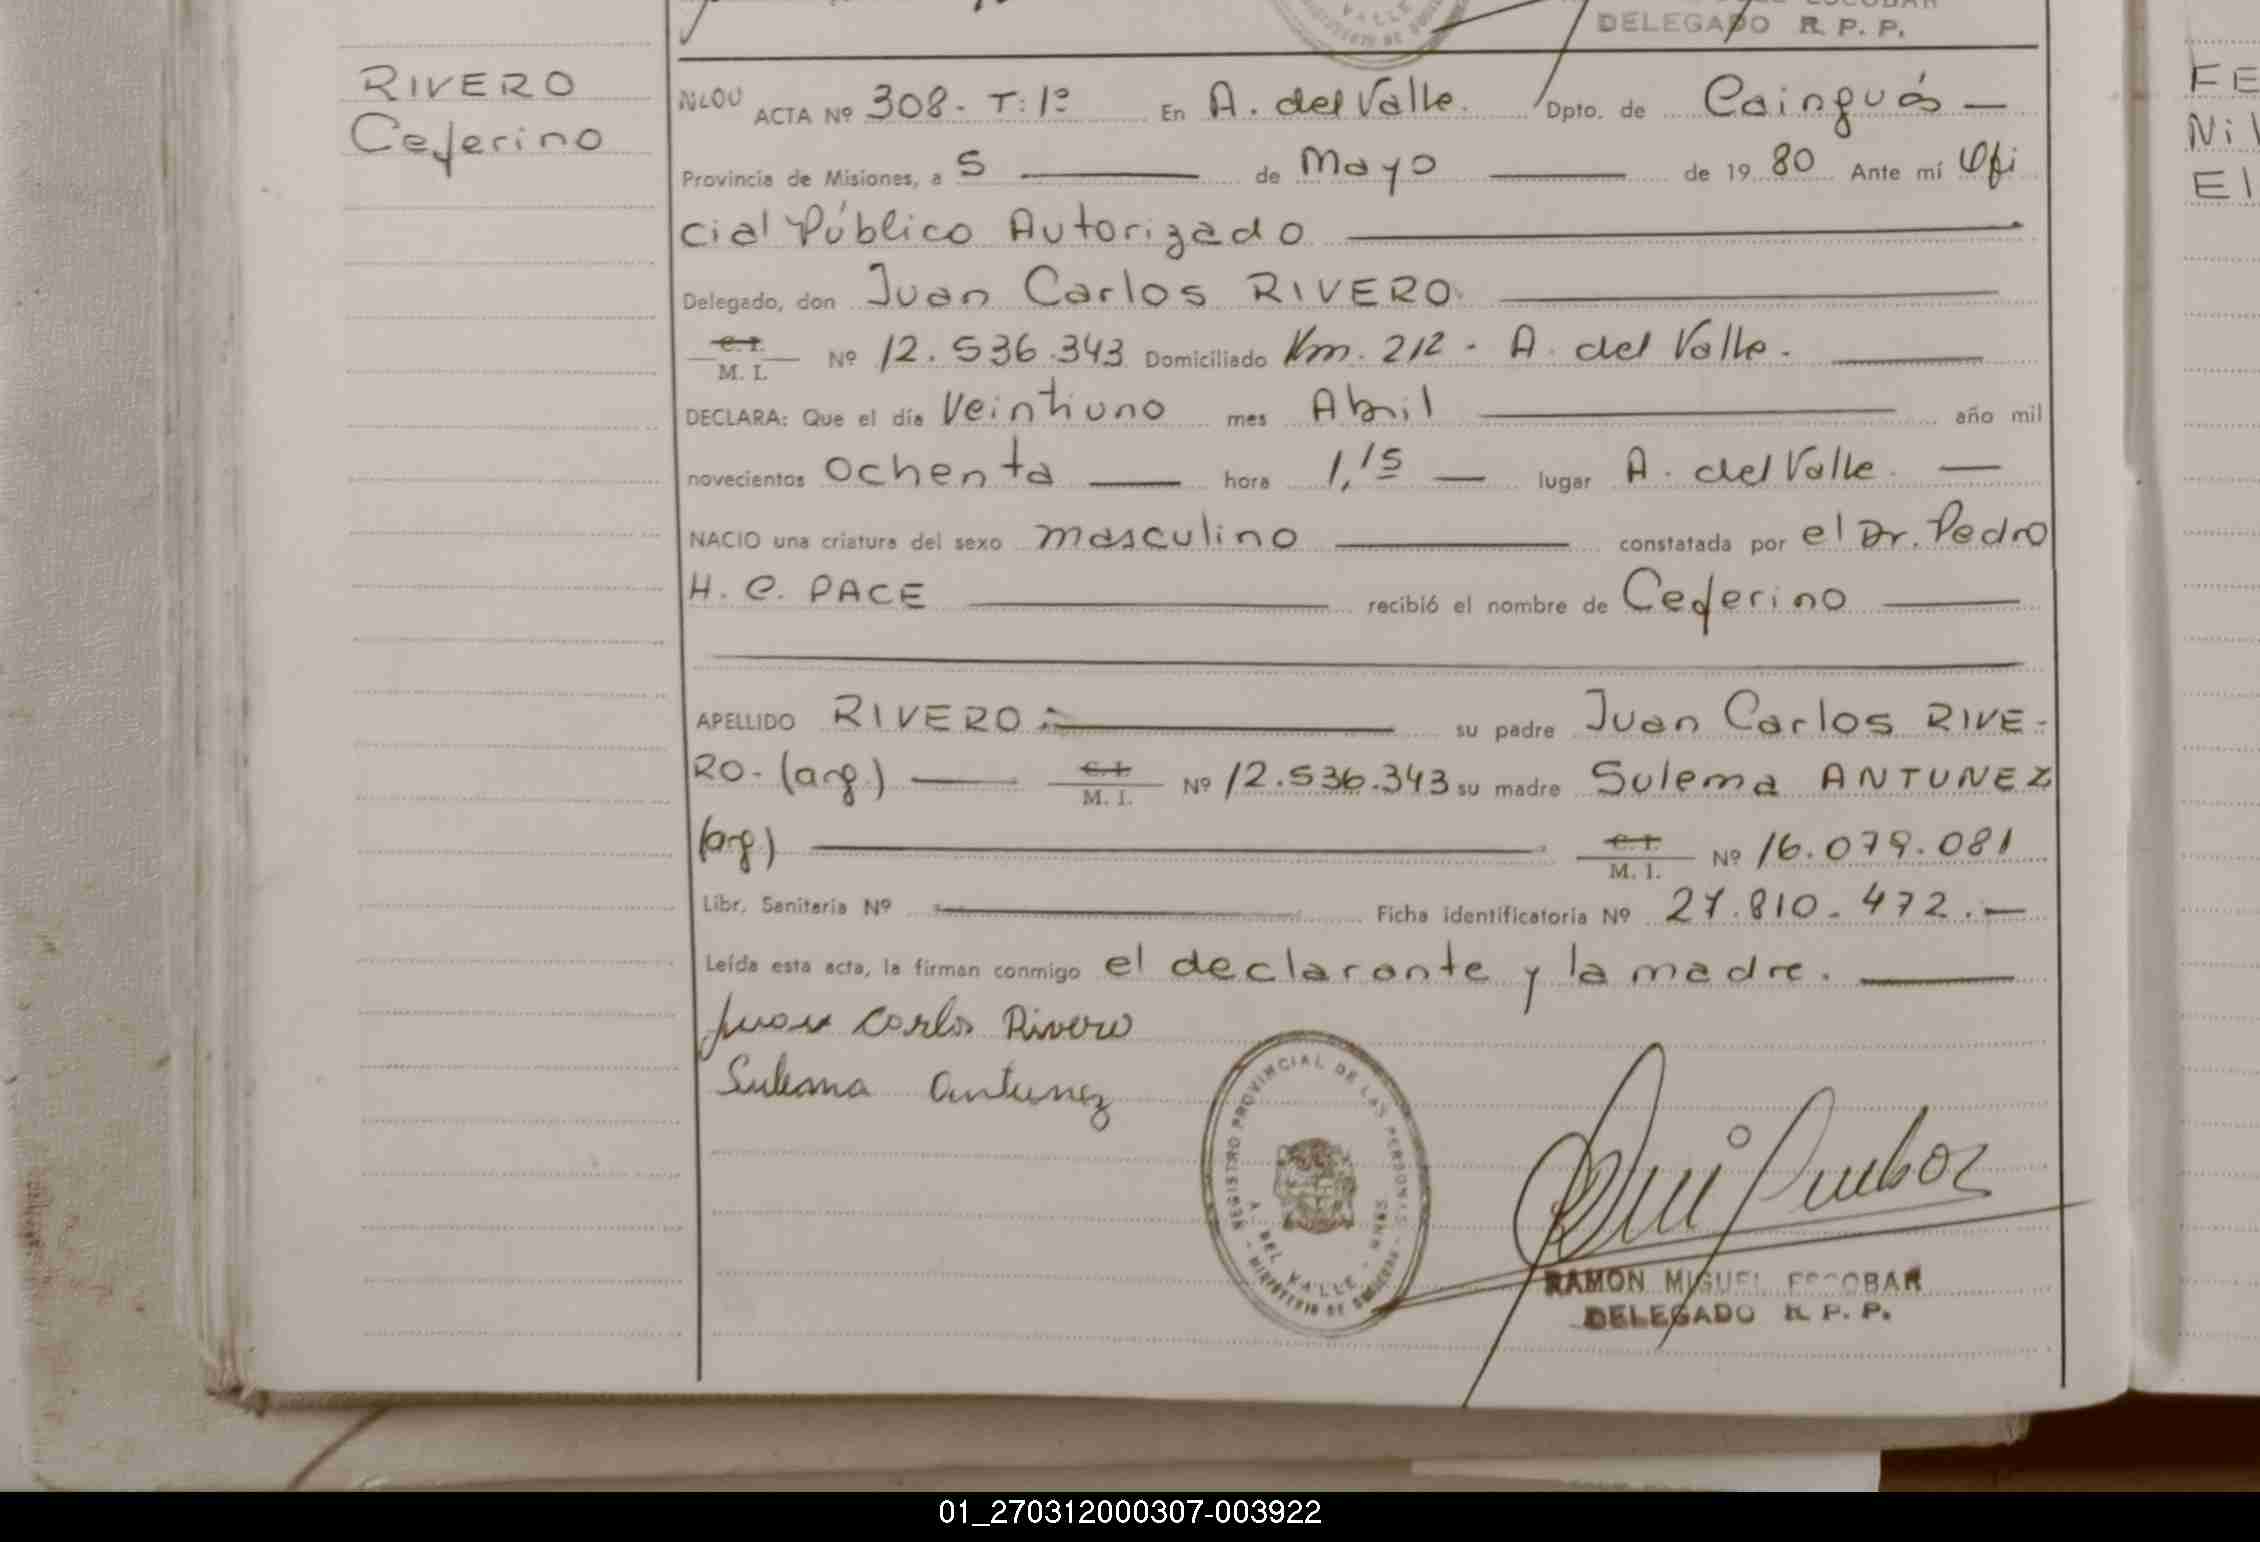 DELEGADO R. P. P.
RIVERO
Ceferino
ACTA Nº 308- T: 1º En A. del Valle. Dpto. de Cainguás
Provincia de Misiones, a 5 de Mayo de 1980 Ante mí Ofi
cial Público Autorizado
Delegado, don Juan Carlos RIVERO
C. I.
M. I. Nº 12.536.343 Domiciliado Km. 212 - A. del Valle.
DECLARA: Que el día Veintiuno mes Abril año mil
novecientos Ochenta hora 1,15 lugar A. del Valle.
NACIO una criatura del sexo masculino constatada por el Dr. Pedro
H. C. PACE recibió el nombre de Ceferino
APELLIDO RIVERO su padre Juan Carlos RIVE-
RO- (arg.) C. I. M. I. Nº 12.536.343 su madre Sulema ANTUNEZ
(arg) C. I. M. I. Nº 16.079.081
Libr. Sanitaria Nº Ficha identificatoria Nº 27.810.472.
Leída esta acta, la firman conmigo el declarante y la madre.
Juan Carlos Rivero
Sulema Antunez
REGISTRO PROVINCIAL DE LAS PERSONAS
A. DEL VALLE - MNES
RAMON MIGUEL ESCOBAR
DELEGADO R. P. P.
FE
Nil
El
01_270312000307-003922